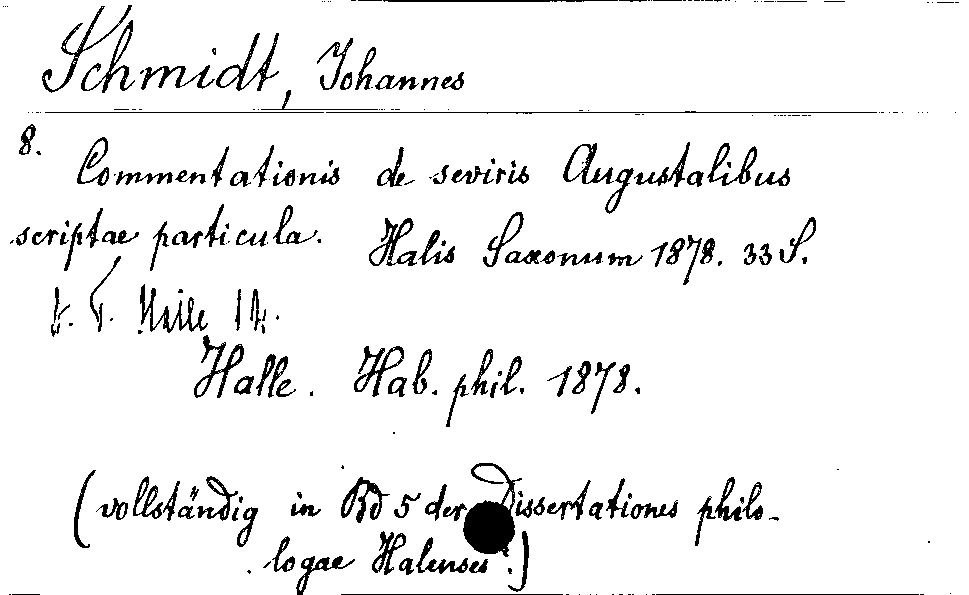 Schmidt, Johannes
8.
Commentationis de seviris Augustalibus
scriptae particula. Halis Saxonum 1878. 33 S.
Halle
Halle. Hab. phil. 1878.
(vollständig in Bd 5 der Dissertationes philo-
logae Halenses.)